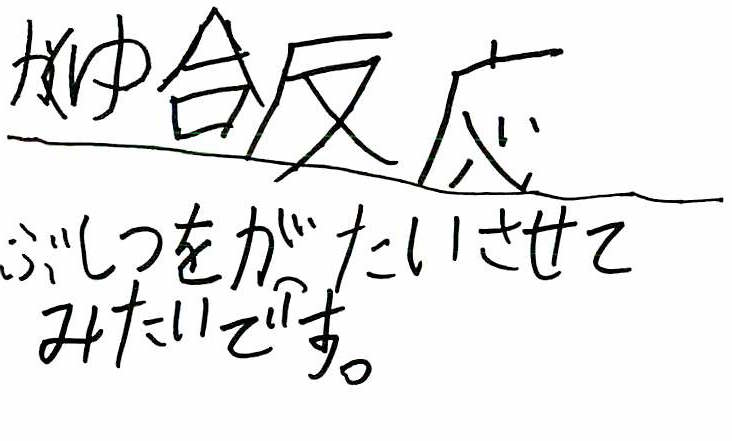 核ゆ合反応
ぶしつをがったいさせて
みたいです。